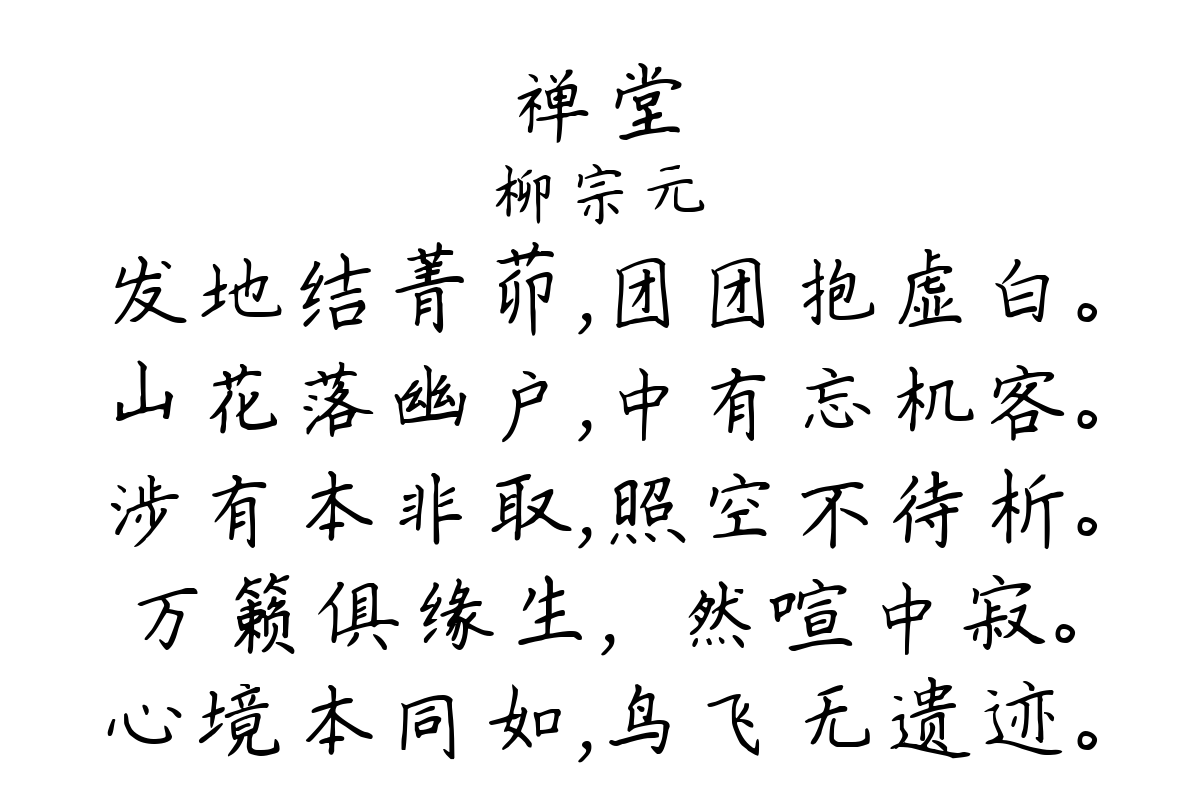 禅堂
柳宗元
发地结菁茆,团团抱虚白。
山花落幽户,中有忘机客。
涉有本非取,照空不待析。
万籁俱缘生，然喧中寂。
心境本同如,鸟飞无遗迹。